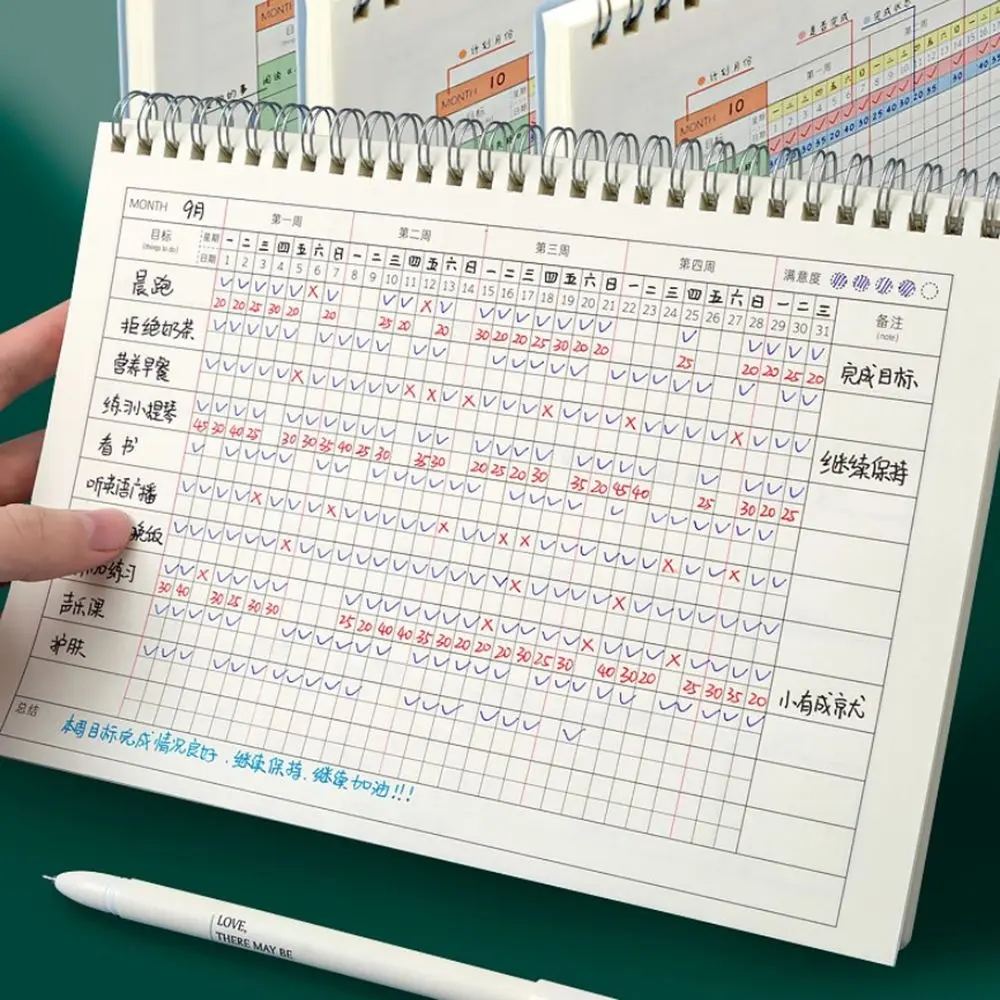 MONTH
MONTH 10
计划月份
MONTH 10
计划月份
是否完成
第一周
MONTH 9月 第一周 第二周 第三周 第四周 满意度
目标 星期 一 二 三 四 五 六 日 一 二 三 四 五 六 日 一 二 三 四 五 六 日 一 二 三 四 五 六 日 一 二 三 备注
(things to do) 日期 1 2 3 4 5 6 7 8 9 10 11 12 13 14 15 16 17 18 19 20 21 22 23 24 25 26 27 28 29 30 31 (note)
晨跑
20 20 25 30 20 20 25 20 20 30 20 20 25 30 20 20 25 20 20 25 20 完成目标
拒绝奶茶
营养早餐
练习小提琴
45 30 40 25 30 30 35 40 25 30 35 30 20 25 20 30 35 20 45 40 25 30 20 25 继续保持
看书
听英语广播
晚饭
练习
30 40 30 25 30 30 25 20 40 40 35 30 20 20 20 30 25 30 40 30 20 25 30 35 20 小有成就
声乐课
护肤
总结
本周目标完成情况良好，继续保持、继续加油!!!
LOVE,
THERE MAY BE